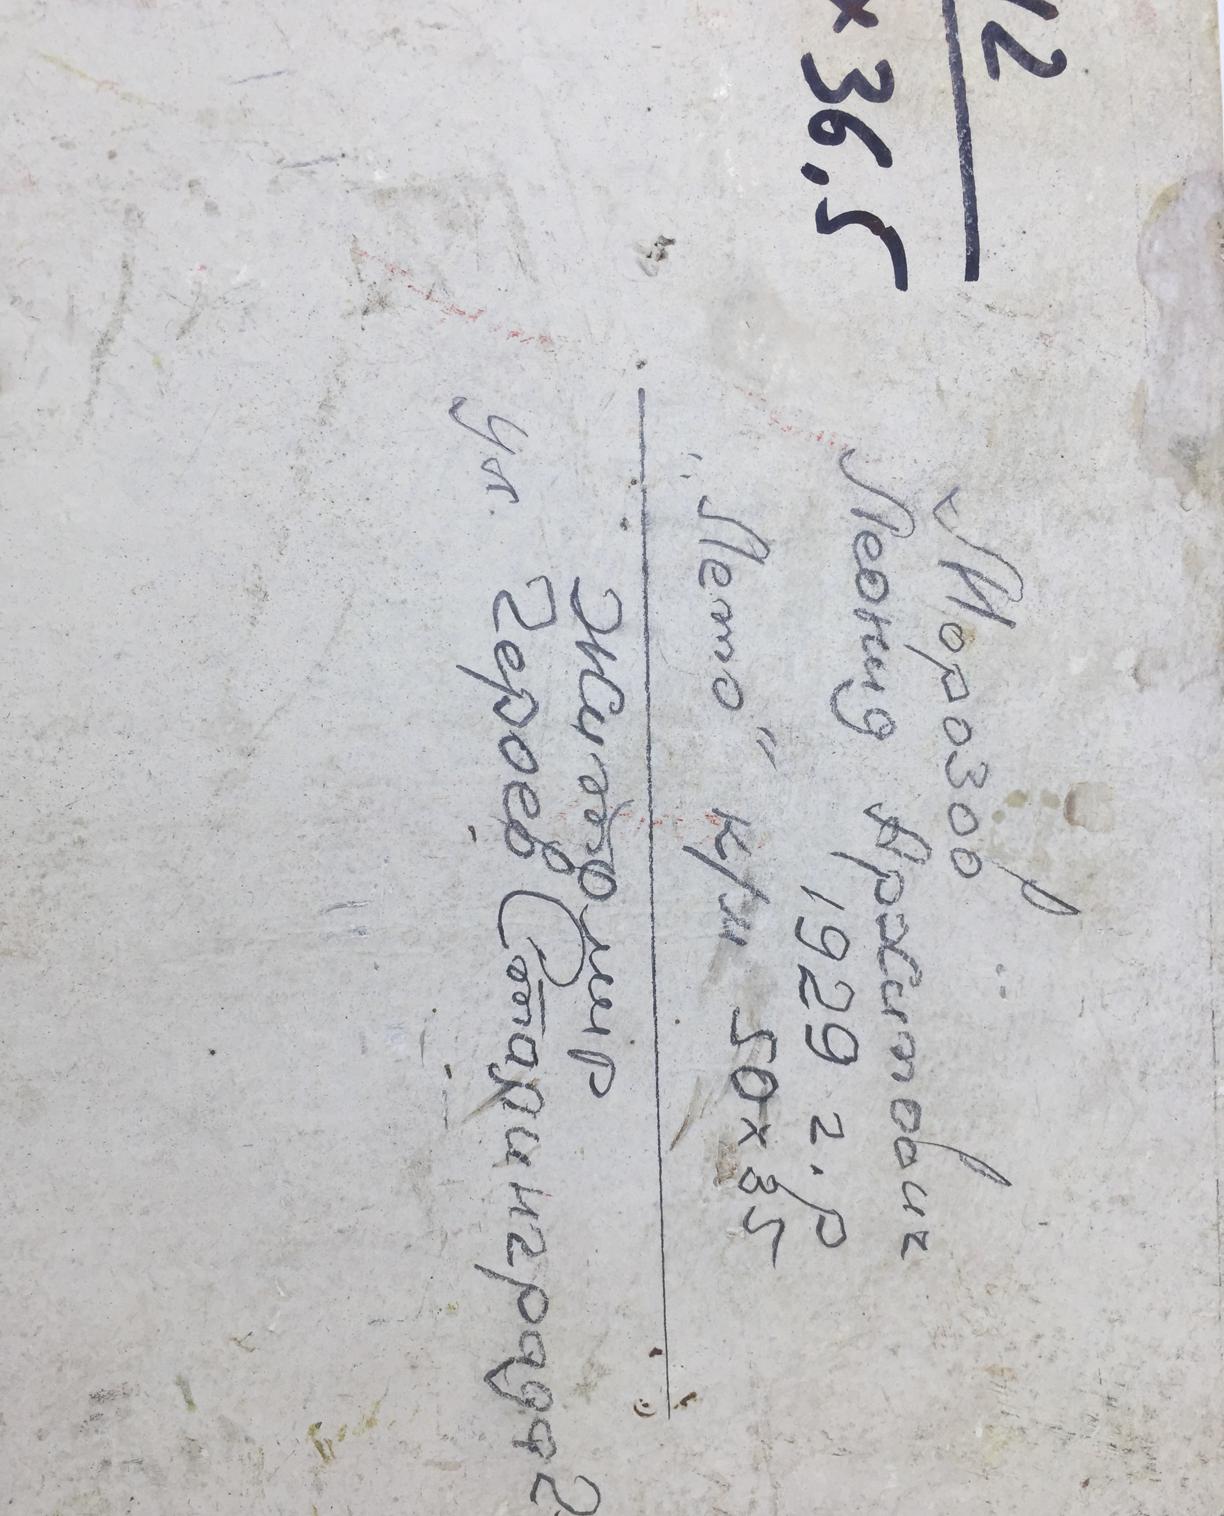 12
× 36,5
Морозов
Леонид Архипович
1929 г.р
"Лето" к/м 50×35
Житомир
ул. Героев Сталинграда 2